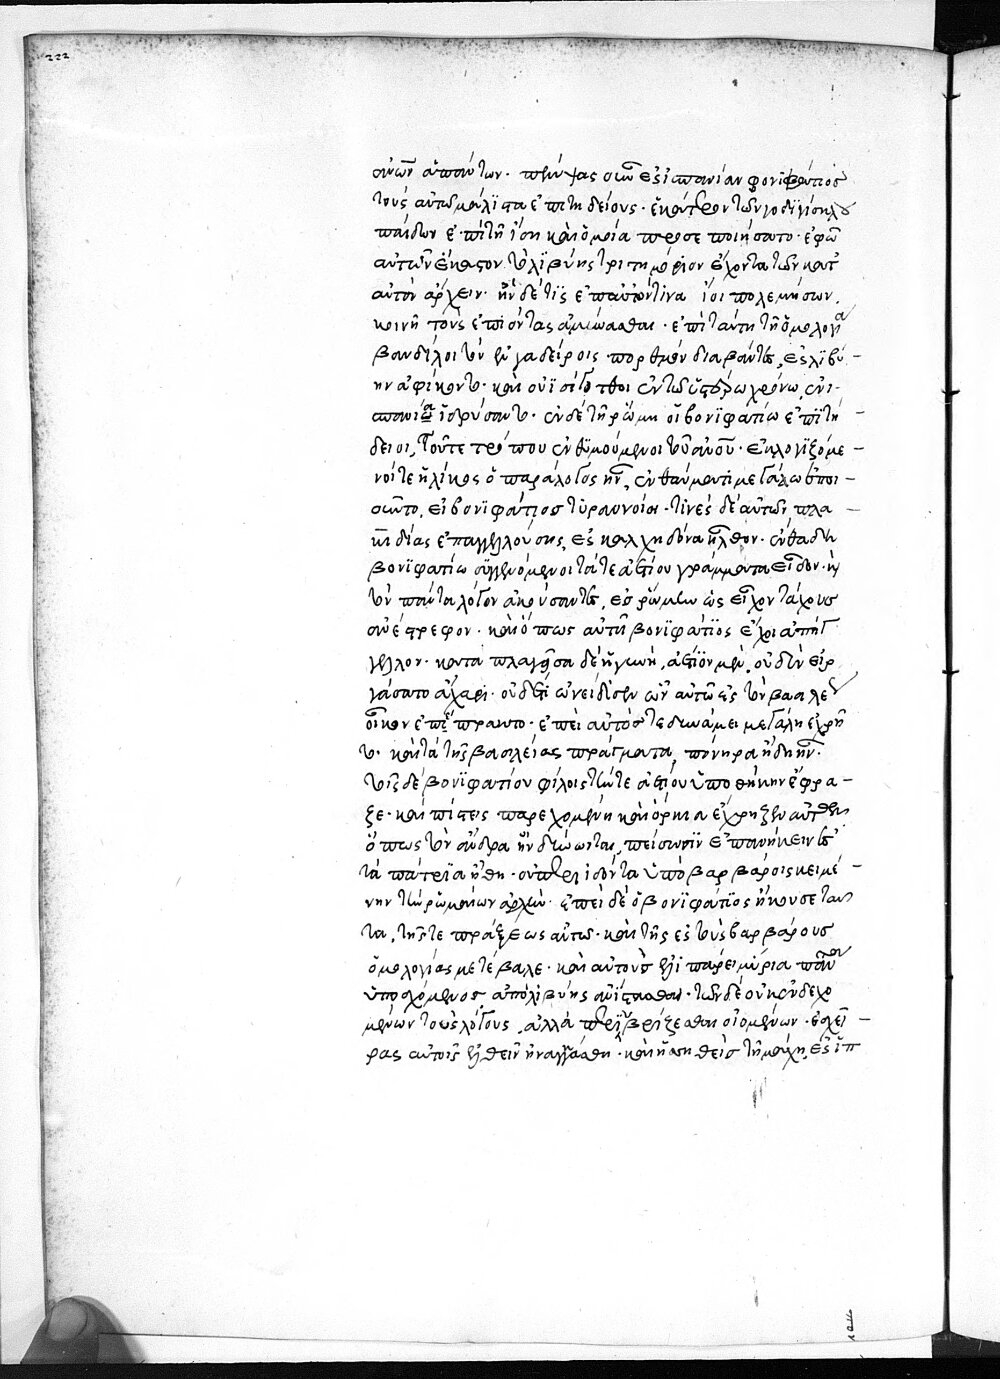 222
οἰκιῶν ἁπάντων. πέμψας οὖν ἐς ἱσπανίαν βονιφάτιος
τοὺς αὐτῷ μάλιστα ἐπιτηδείους. ἑκάτερον τῶν γοδιγίσκλου
παίδων ἐπὶ τῇ ἴσῃ καὶ ὁμοίᾳ προσεποιήσατο. ἐφῶ
αὐτῶν ἕκαστον τὸ λιβύης τριτημόριον ἔχοντα τῶν κατ
αὐτὸν ἄρχειν. ἢν δέ τις ἐπ αὐτόν τινα ἴοι πολεμήσων,
κοινῇ τοὺς ἐπιόντας ἀμύνασθαι. ἐπὶ ταύτῃ τῇ ὁμολογίᾳ
βανδίλοι τὸν ἐν γαδείροις πορθμὸν διαβάντες, ἐς λιβύ-
ην ἀφίκοντο. καὶ οὐισίγοτθοι ἐν τῷ ὑστέρῳ χρόνῳ, ἐν ἱ-
σπανίᾳ ἱδρύσαντο. ἐν δὲ τῇ ῥώμῃ οἱ βονιφατίῳ ἐπιτή-
δειοι, τοῦ τε τρόπου ἐνθυμούμενοι τοῦ ἀνδρὸς. ἐκλογιζόμε-
νοί τε ἡλίκος ὁ παράλογος ἦν, ἐν θαύματι μεγάλῳ ἐποι-
οῦντο, εἰ βονιφάτιος τυραννοίη. τινὲς δὲ αὐτῶν πλα-
κιδίας ἐπαγγελλούσης, ἐς καλχηδόνα ἦλθον. ἔνθα δὴ
βονιφατίῳ συγγενόμενοι τά τε ἀετίου γράμματα εἶδον. καὶ
τὸν πάντα λόγον ἀκούσαντες, ἐς ῥώμην ὡς εἶχον τάχους
ἀνέστρεφον. καὶ ὅπως αὐτῇ βονιφάτιος ἔχοι ἀπήγ
γελλον. καταπλαγεῖσα δὲ ἡ γυνὴ, ἀέτιον μὲν, οὐδὲν εἰρ
γάσατο ἄχαρι. οὐδέ τι ὠνείδισεν ὧν αὐτῷ ἐς τὸν βασιλέως
οἶκον ἐπέπρακτο. ἐπεὶ αὐτός τε δυνάμει μεγάλῃ ἐχρῆ
το. καὶ τὰ τῆς βασιλείας πράγματα, πονηρὰ ἤδη ἦν.
τοῖς δὲ βονιφατίου φίλοις τήν τε ἀετίου ὑποθήκην ἔφρα-
ζε. καὶ πίστεις παρεχομένη καὶ ὅρκια ἔχρῃζεν αὐτῶν
ὅπως τὸν ἄνδρα ἢν δύνωνται, πείσωσιν ἐπανήκειν ἐς
τὰ πάτρια ἤθη. οὐ περιϊδόντα ὑπὸ βαρβάροις κειμέ-
νην τὴν ῥωμαίων ἀρχήν. ἐπεὶ δὲ ὁ βονιφάτιος ἤκουσε ταῦ
τα, τῆς τε πράξεως αὐτῷ. καὶ τῆς ἐς τοὺς βαρβάρους
ὁμολογίας μετέβαλε. καὶ αὐτοὺς ἐλιπάρει μυρία πάντα
ὑποσχόμενος, ἀπὸ λιβύης ἀνίστασθαι. τῶν δὲ οὐκ ἐνδεχο
μένων τοὺς λόγους, ἀλλὰ περιυβρίζεσθαι οἰομένων. ἐς χεῖ-
ρας αὐτοῖς ἐλθεῖν ἠναγκάσθη. καὶ ἡσσηθεὶς τῇ μάχῃ, ἐς ἱπ